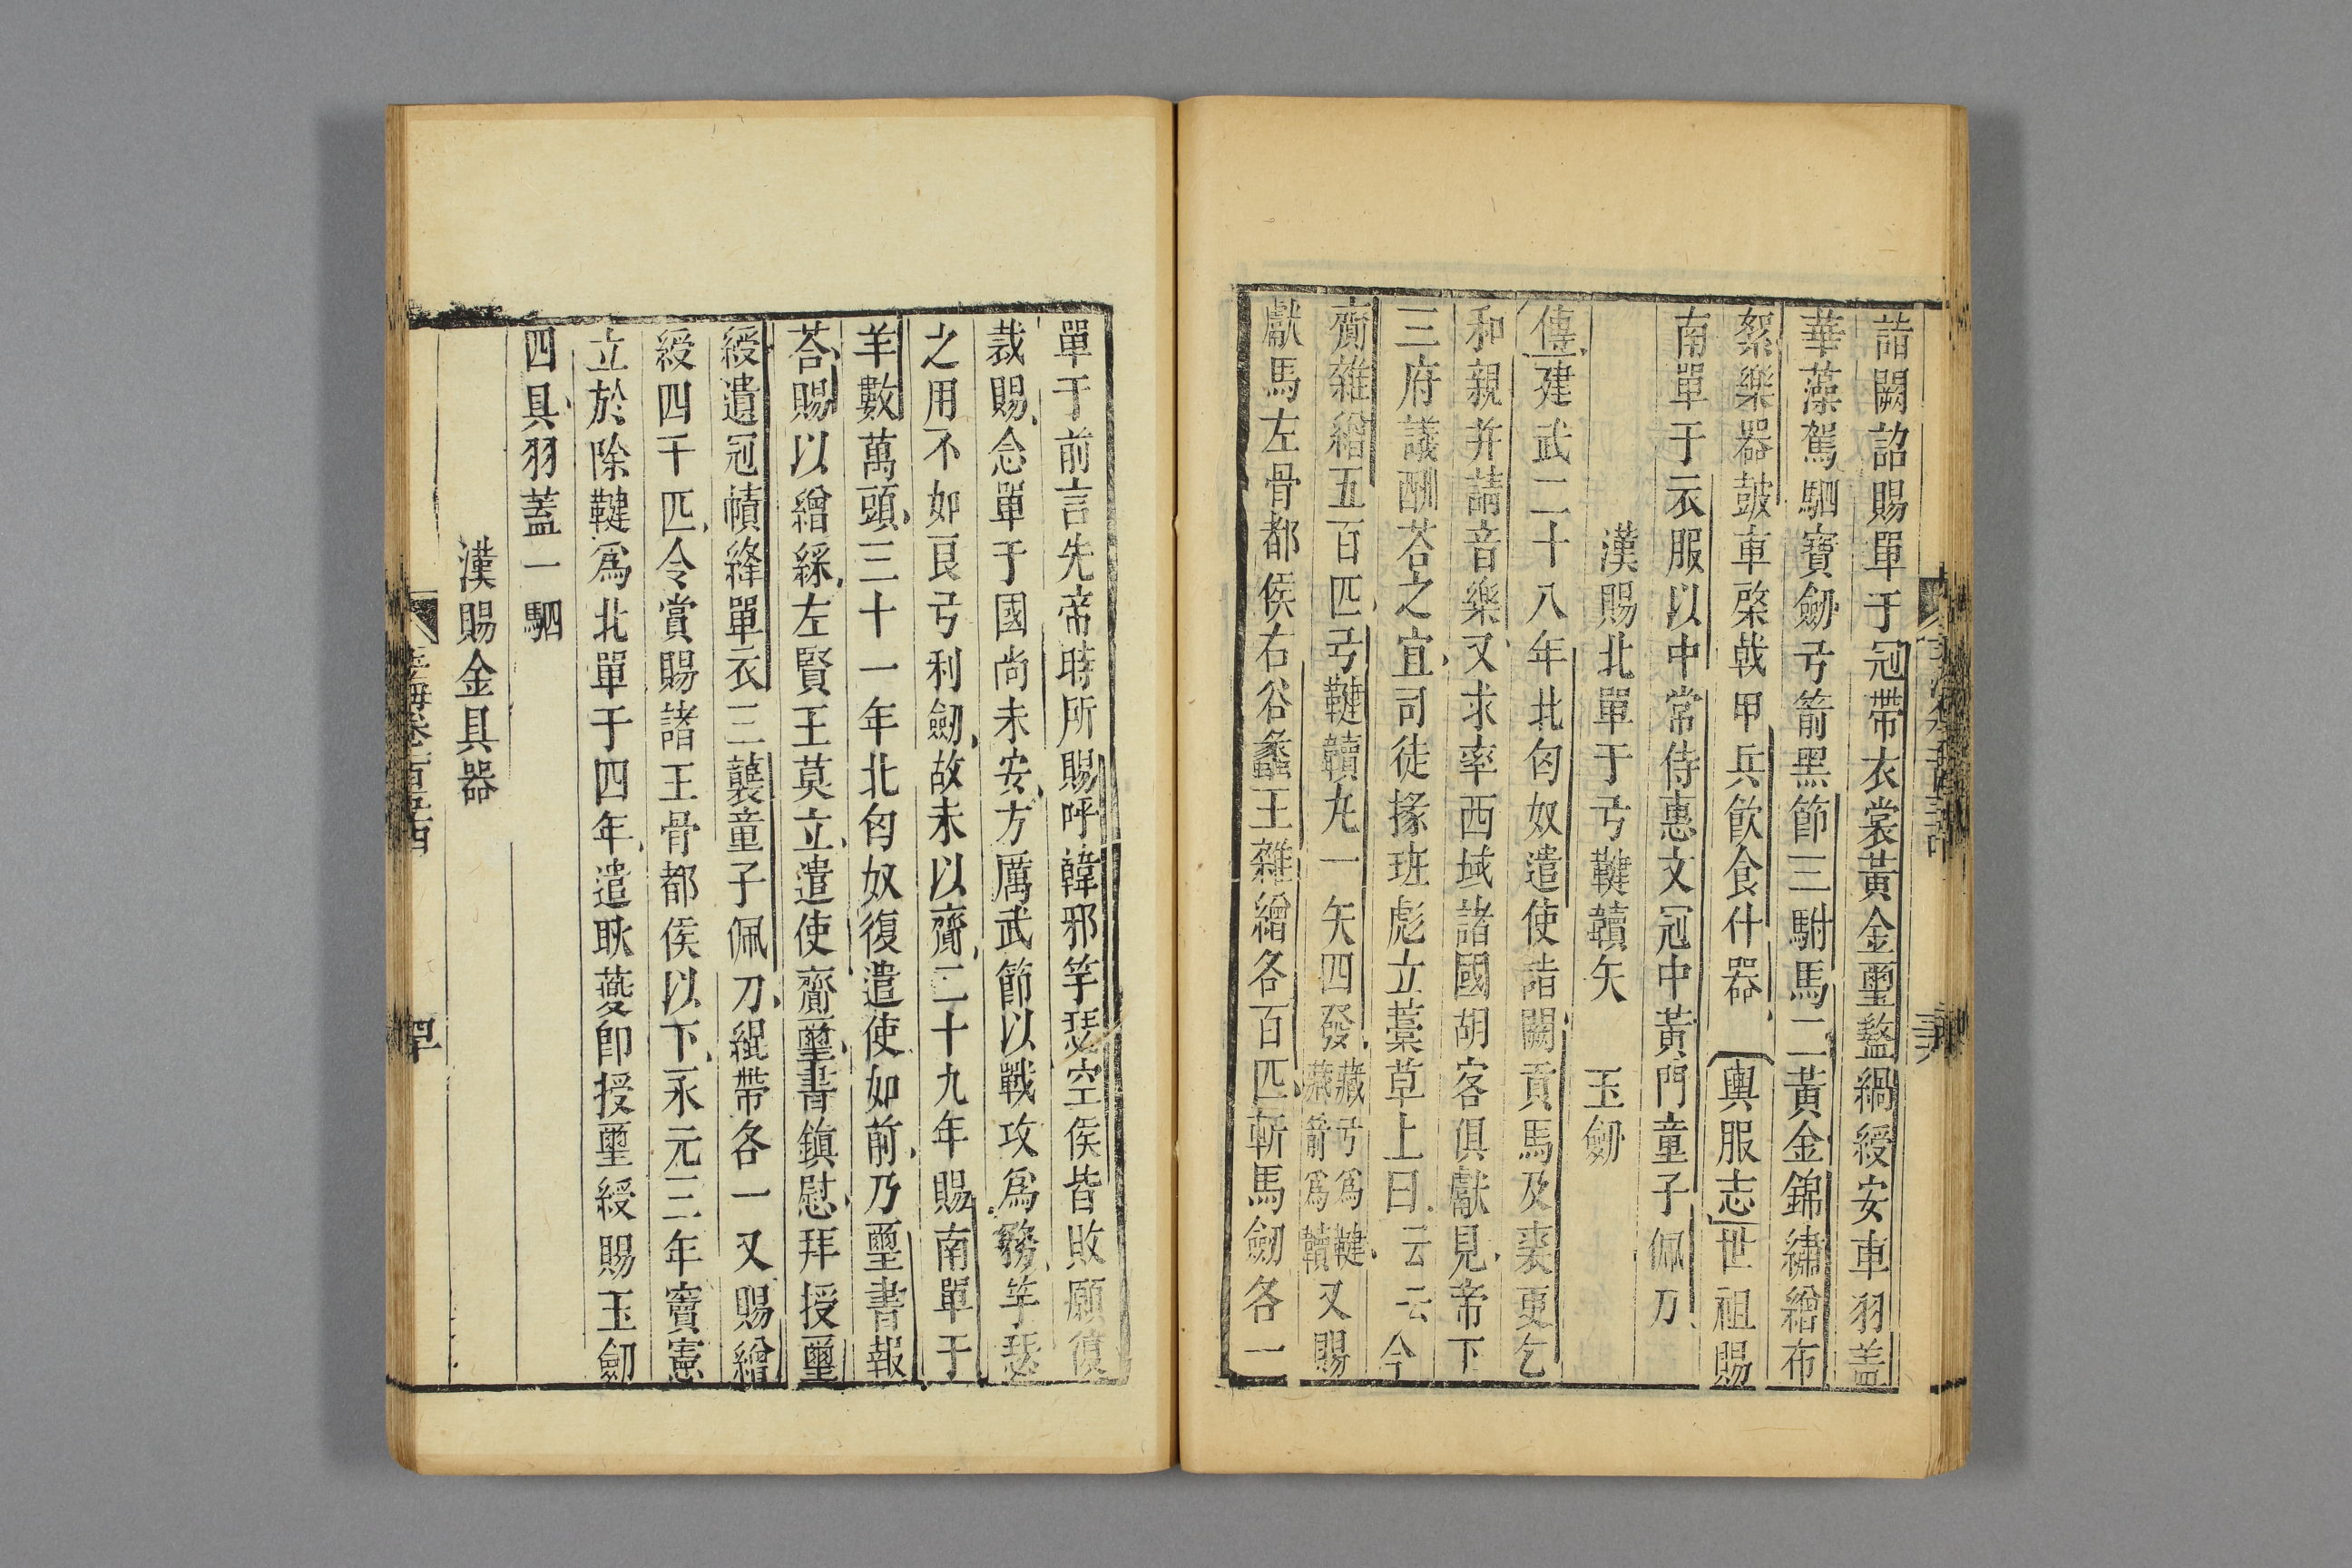 詣闕詔賜單于冠帶衣裳黃金璽盭緺綬安車羽盖
華藻駕駟寶劒弓箭黑節三駙馬二黃金錦繡繒布
絮樂器鼓車棨戟甲兵飲食什器輿服志世祖賜
南單于衣服以中常侍惠文冠中黃門童子佩刀
漢賜北單于弓鞬韥矢　玉劒
傳建武二十八年北匈奴遣使詣闕貢馬及裘更乞
和親并請音樂又求率西域諸國胡客俱獻見帝下
三府議酬荅之宜司徒掾班彪立藁草上曰云云今
齎雜繒五百匹弓鞬韥丸一矢四發藏弓爲鞬藏箭爲韥又賜
獻馬左骨都侯右谷蠡王雜繒各百匹斬馬劒各一
單于前言先帝時所賜呼韓邪竽瑟空侯皆敗願復
裁賜念單于國尚未安方厲武節以戰攻爲務竽瑟
之用不如良弓利劒故未以齎二十九年賜南單于
羊數萬頭三十一年北匈奴復遣使如前乃璽書報
荅賜以繒綵左賢王莫立遣使齎璽書鎮慰拜授璽
綬遺冠幘絳單衣三襲童子佩刀緄帶各一又賜繒
綵四千匹令賞賜諸王骨都侯以下永元三年竇憲
立於除鞬爲北單于四年遣耿夔即授璽綬賜玉劒
四具羽蓋一駟
漢賜金具器